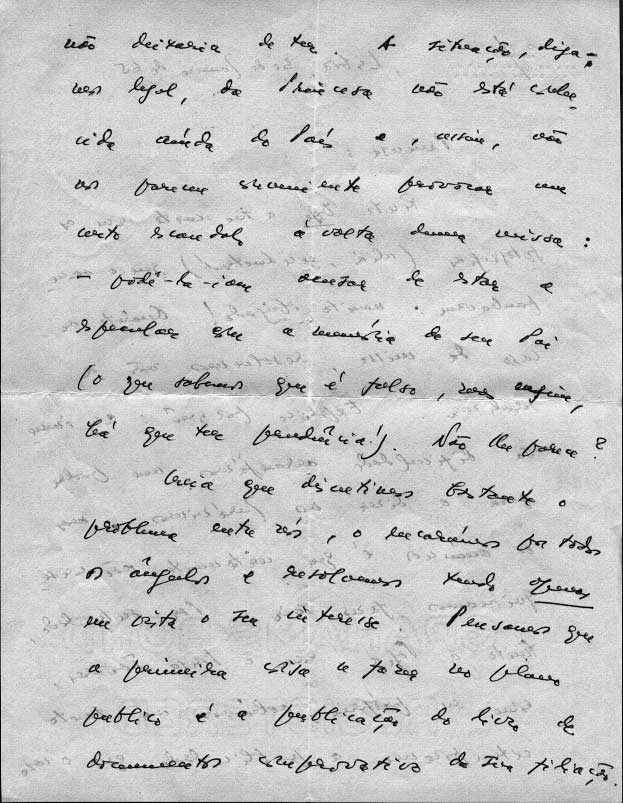 não deixaria de ter. A situação, diga-
mos legal, da Princesa não está escla-
cida ainda do País e, assim, não
nos parecem conveniente provocar um
certo escandalo á volta duma missa:
— podê-la-iam acusar de estar a
especular com a memória de seu Pai
(o que sabemos que é falso, mas enfim,
há que ter prudência!). Não lhe parece?
Creia que discutimos bastante o
problema entre nós, o encarámos por todos
os ângulos e resolvemos tendo apenas
em vista o seu interesse. Pensamos que
a primeira coisa a fazer no plano
publico é a publicação do livro de
documentos comprovativo da sua filiação.